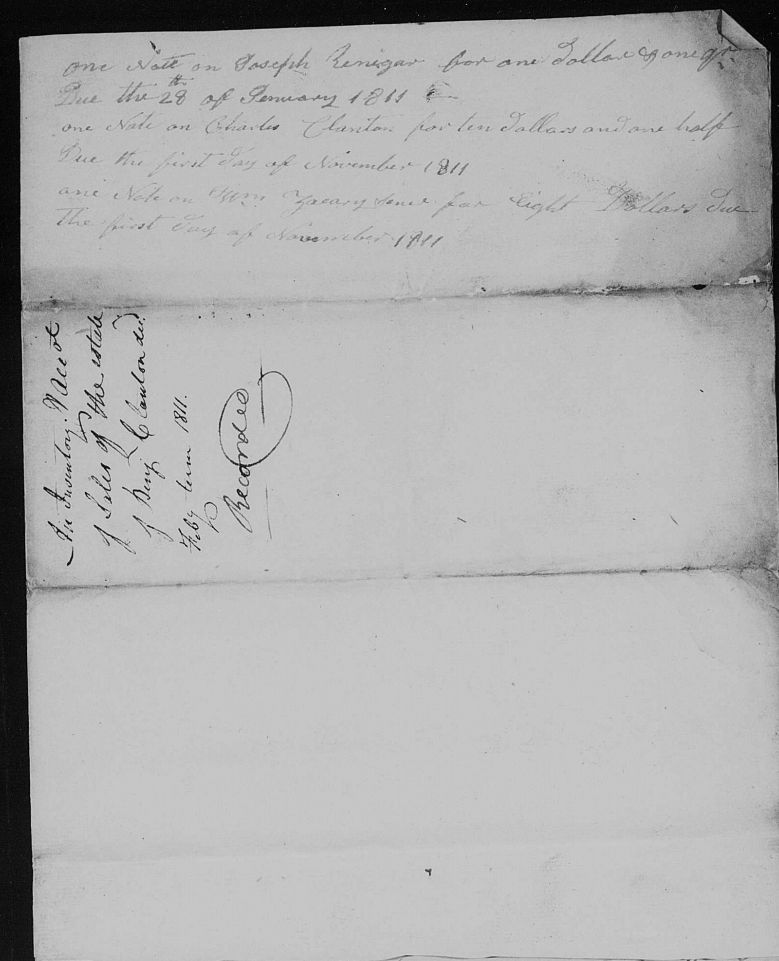 one Note on Joseph Renigar for one Dollar & one qr
Due the 28th of Jenuary 1811
one Note on Charles Clanton for ten Dollars and one half
Due the first Day of November 1811
one Note on Wm Zacary Sener for Eight Dollars Due
the first Day of November 1811
The Inventory & Acct
of Sales of the estate
of Benj Clanton decd.
Feby term 1811.
Recorded